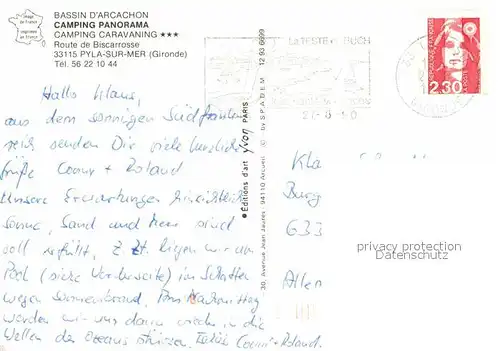 Image
de France
imprimée
en France
BASSIN D'ARCACHON
CAMPING PANORAMA
CAMPING CARAVANING ★★★
Route de Biscarrosse
33115 PYLA-SUR-MER (Gironde)
Tél. 56 22 10 44
La TESTE BUCH
REPUBLIQUE FRANÇAISE
2,30
Hallo Klaus,
aus dem sonnigen Südfrankreich
senden Dir viele herzliche
Grüße Conny + Roland
Unsere Erwartungen hinsichtlich
Sonne, Sand und Meer sind
voll erfüllt. Z. Zt. liegen wir am
Pool (siehe Vorderseite) im Schatten
wegen Sonnenbrand. Am Nachmittag
werden wir uns dann wieder in die
Wellen des Ozeans stürzen. Conny + Roland.
● Editions d'art yvon PARIS
30, Avenue Jean Jaurès 94110 Arcueil © by SPADEM 12 93 6699
Kla
Burg
633
privacy protection
Datenschutz